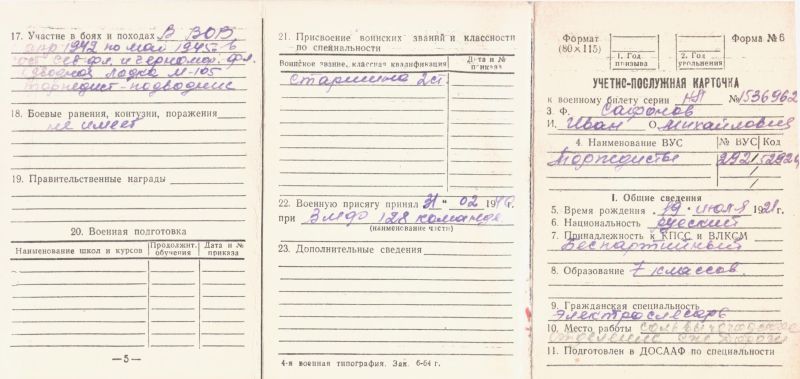 17. Участие в боях и походах В ВОВ
апр 1942 по май 1945 в
сост. Сев. фл. и Черномор. фл.
подводная лодка М-105
торпедист-подводник
18. Боевые ранения, контузии, поражения
не имеет
19. Правительственные награды
20. Военная подготовка
Наименование школ и курсов
Продолжит. обучения
Дата и № приказа
— 5 —
21. Присвоение воинских званий и классности
по специальности
Воинское звание, классная квалификация
Дата и № приказа
старшина 2 ст.
22. Военную присягу принял 31 " 02 19
при 128 команда
(наименование части)
23. Дополнительные сведения
4-я военная типография. Зак. 6-64 г.
Формат
(80×115)
1. Год призыва
2. Год увольнения
Форма № 6
УЧЕТНО-ПОСЛУЖНАЯ КАРТОЧКА
к военному билету серии НЯ № 1536962
3. Ф. Сафонов
И. Иван О. Михайлович
4. Наименование ВУС
№ ВУС
Код
Торпедисты
I. Общие сведения
5. Время рождения 19 июля 1921 г.
6. Национальность русский
7. Принадлежность к КПСС и ВЛКСМ
беспартийный
8. Образование 7 классов.
9. Гражданская специальность
электрослесарь
10. Место работы
отделение
11. Подготовлен в ДОСААФ по специальности